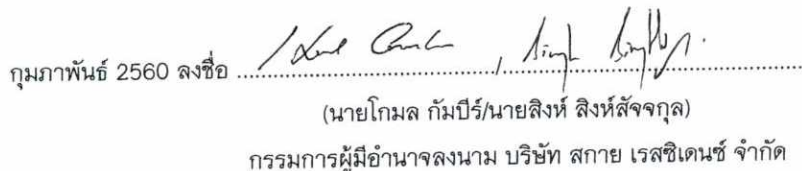 กุมภาพันธ์ 2560 ลงชื่อ ........................................,........................................
(นายโกมล กัมบีร์/นายสิงห์ สิงห์สัจจกุล)
กรรมการผู้มีอำนาจลงนาม บริษัท สกาย เรสซิเดนซ์ จำกัด